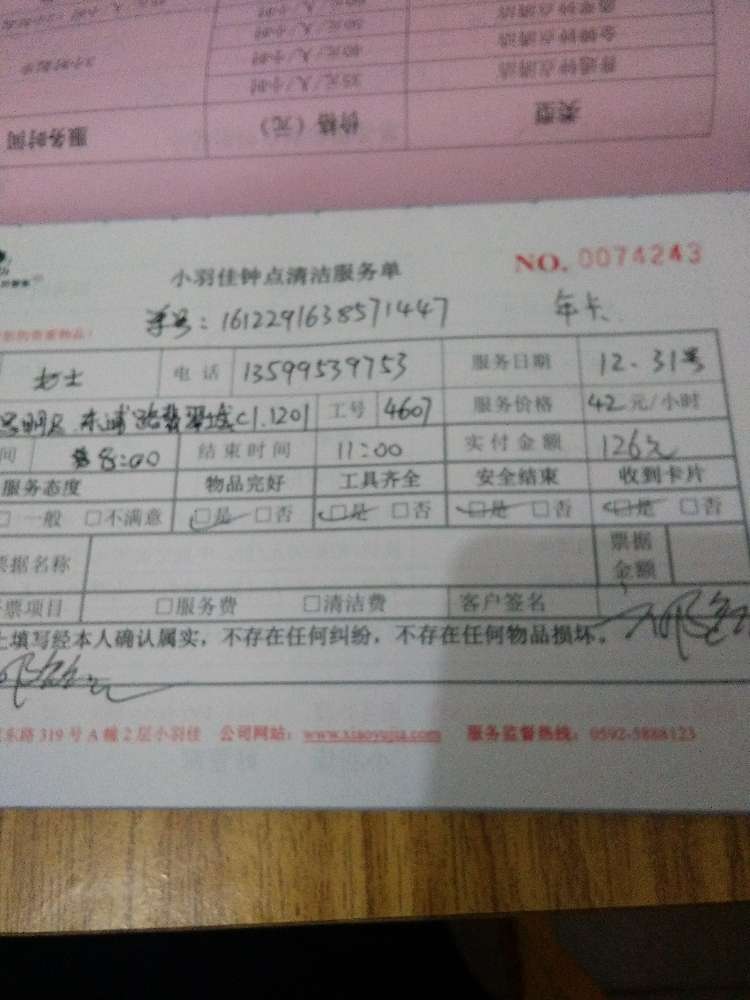 服务时间 价格（元） 类型
35元/人/小时 普通钟点清洁
3小时起半 40元/人/小时 金牌钟点清洁
50元/人/小时
小羽佳钟点清洁服务单 NO. 0074243
单号：1612291638571447 年卡
女士 电话 13599539753 服务日期 12.31号
东浦路翡翠城C1.1201 工号 4607 服务价格 42元/小时
间 8:00 结束时间 11:00 实付金额 126元
服务态度 物品完好 工具齐全 安全结束 收到卡片
□一般 □不满意 □是 □否 □是 □否 □是 □否 □是 □否
票据名称 票据金额
票项目 □服务费 □清洁费 客户签名
上填写经本人确认属实，不存在任何纠纷，不存在任何物品损坏。
东路319号A幢2层小羽佳 公司网站：www.xiaoyujia.com 服务监督热线：0592-5888123